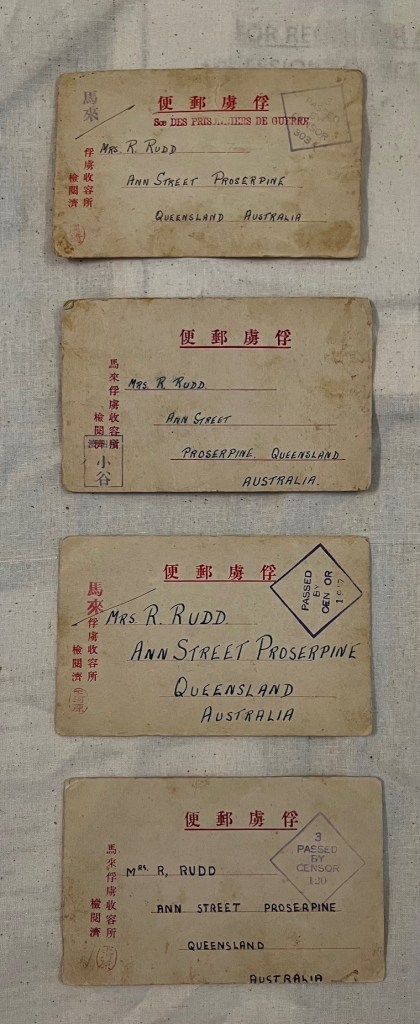 俘虜郵便
Sce DES PRISONNIERS DE GUERRE
馬來
俘虜收容所
檢閲濟
MRS. R. RUDD
ANN STREET PROSERPINE
QUEENSLAND AUSTRALIA
俘虜郵便
馬來俘虜收容所
檢閲濟
小谷
MRS. R RUDD.
ANN STREET
PROSERPINE. QUEENSLAND
AUSTRALIA.
俘虜郵便
PASSED
BY
馬來
俘虜收容所
檢閲濟
MRS. R. RUDD.
ANN STREET PROSERPINE
QUEENSLAND
AUSTRALIA
俘虜郵便
3
PASSED
BY
CENSOR
馬來俘虜收容所
檢閲濟
MRS. R, RUDD
ANN STREET PROSERPINE
QUEENSLAND
AUSTRALIA